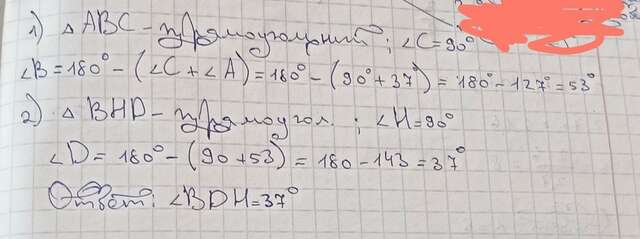 1) △ ABC - прямоугольный ; ∠C=90°
∠B=180°-(∠C+∠A)=180°-(90°+37°)=180°-127°=53°
2) △ BHD - прямоугол. ; ∠H=90°
∠D=180°-(90+53)=180-143=37°
Ответ: ∠BDH=37°